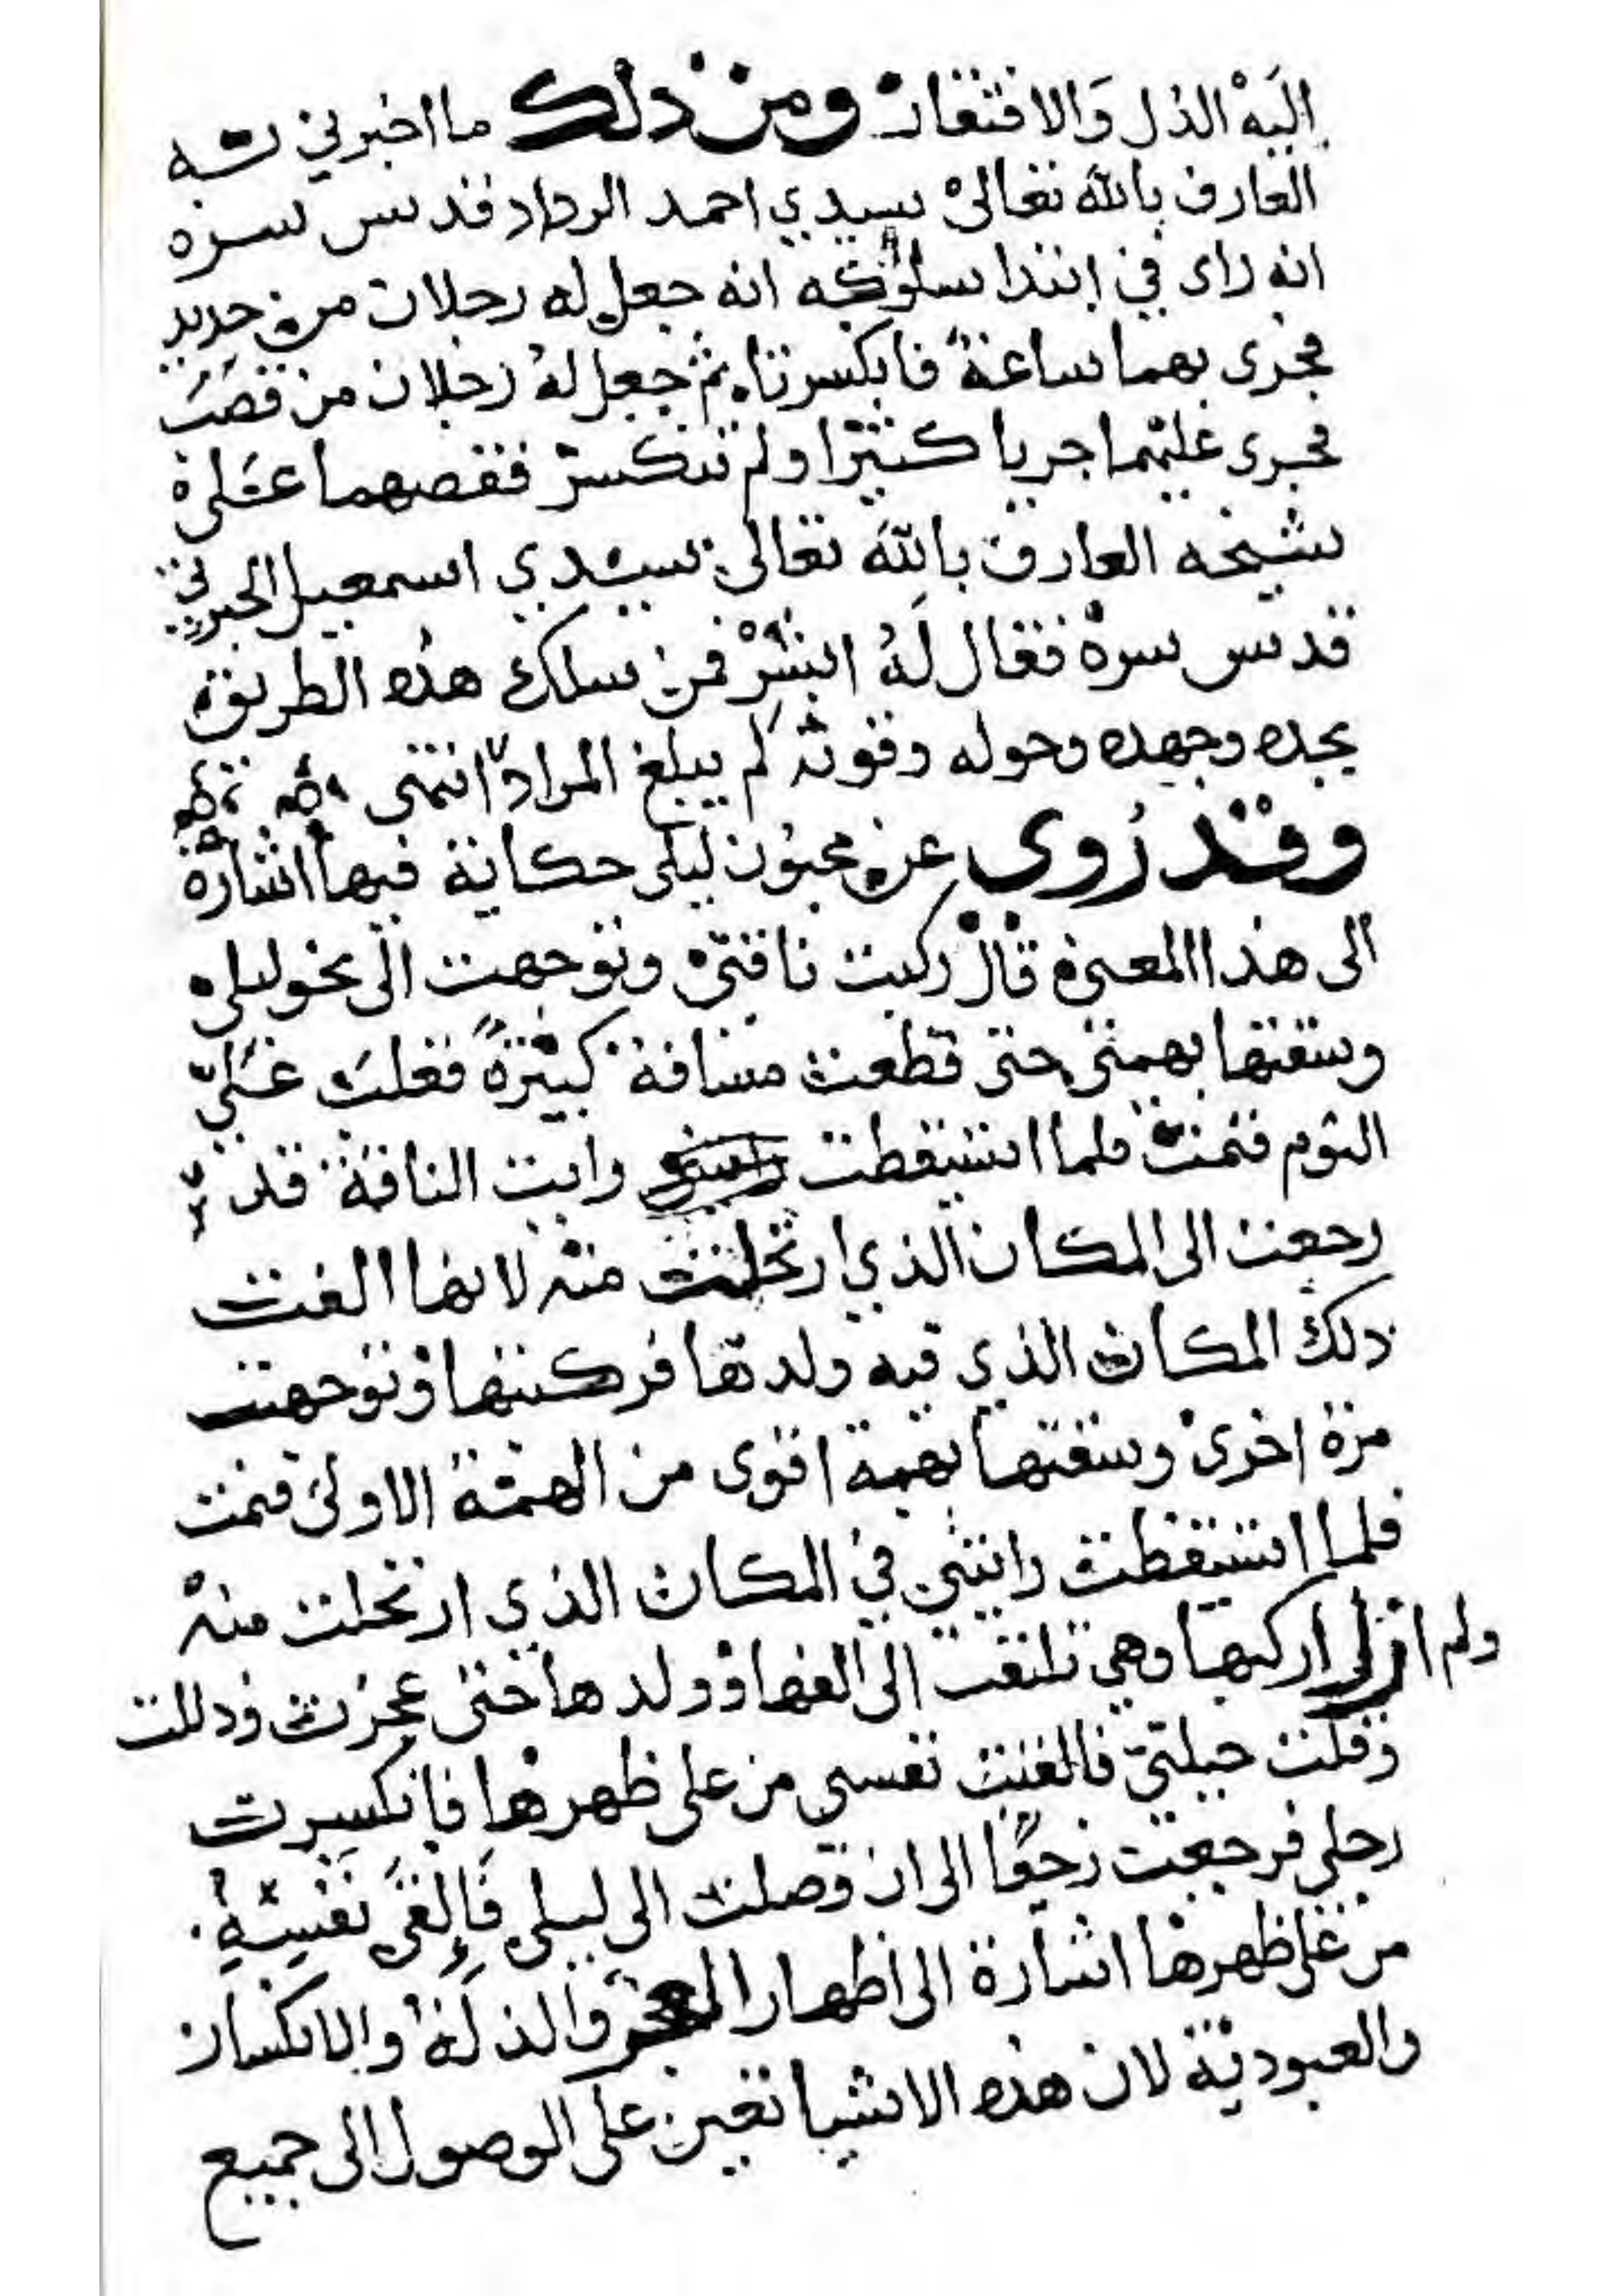 إليه الذل والافتقار ومن ذلك ما اخبرني به
العارف بالله تعالى سيدي احمد الرداد قدس سره
انه راى في ابتدا سلوكه انه جعل له رجلان من حديد
فجرى بهما ساعة فانكسرتا ثم جعل له رجلان من قصب
فجرى عليهما جريا كثيرا ولم تنكسر فقصهما على
شيخه العارف بالله تعالى سيدي اسمعيل الجبرتي
قدس سره فقال له ابشر فمن سلك هذه الطريق
بجده وجهده وحوله وقوته لم يبلغ المراد انتهى
وقد روي عن مجنون ليلى حكاية فيها اشارة
الى هذا المعنى قال ركبت ناقتي وتوجهت الى نحو ليلى
وسقتها بهمتي حتى قطعت مسافة كبيرة فغلب علي
النوم فنمت فلما استيقظت رايت الناقة قد
رجعت الى المكان الذي ارتحلت منه لانها الفت
ذلك المكان الذي فيه ولدها فركبتها وتوجهت
مرة اخرى وسقتها بهمة اقوى من الهمة الاولى فنمت
فلما استيقظت رايتني في المكان الذي ارتحلت منه
ولم ازل اركبها وهي تلتفت الى الفها وولدها حتى عجزت وذللت
وقلت حيلتي فالقيت نفسي من على ظهرها فانكسرت
رجلي فرجعت زحفا الى ان وصلت الى ليلى فإلقى نفسه
من على ظهرها اشارة الى اظهار العجز والذلة والانكسار
والعبودية لان هذه الاشيا تعين على الوصول الى جميع